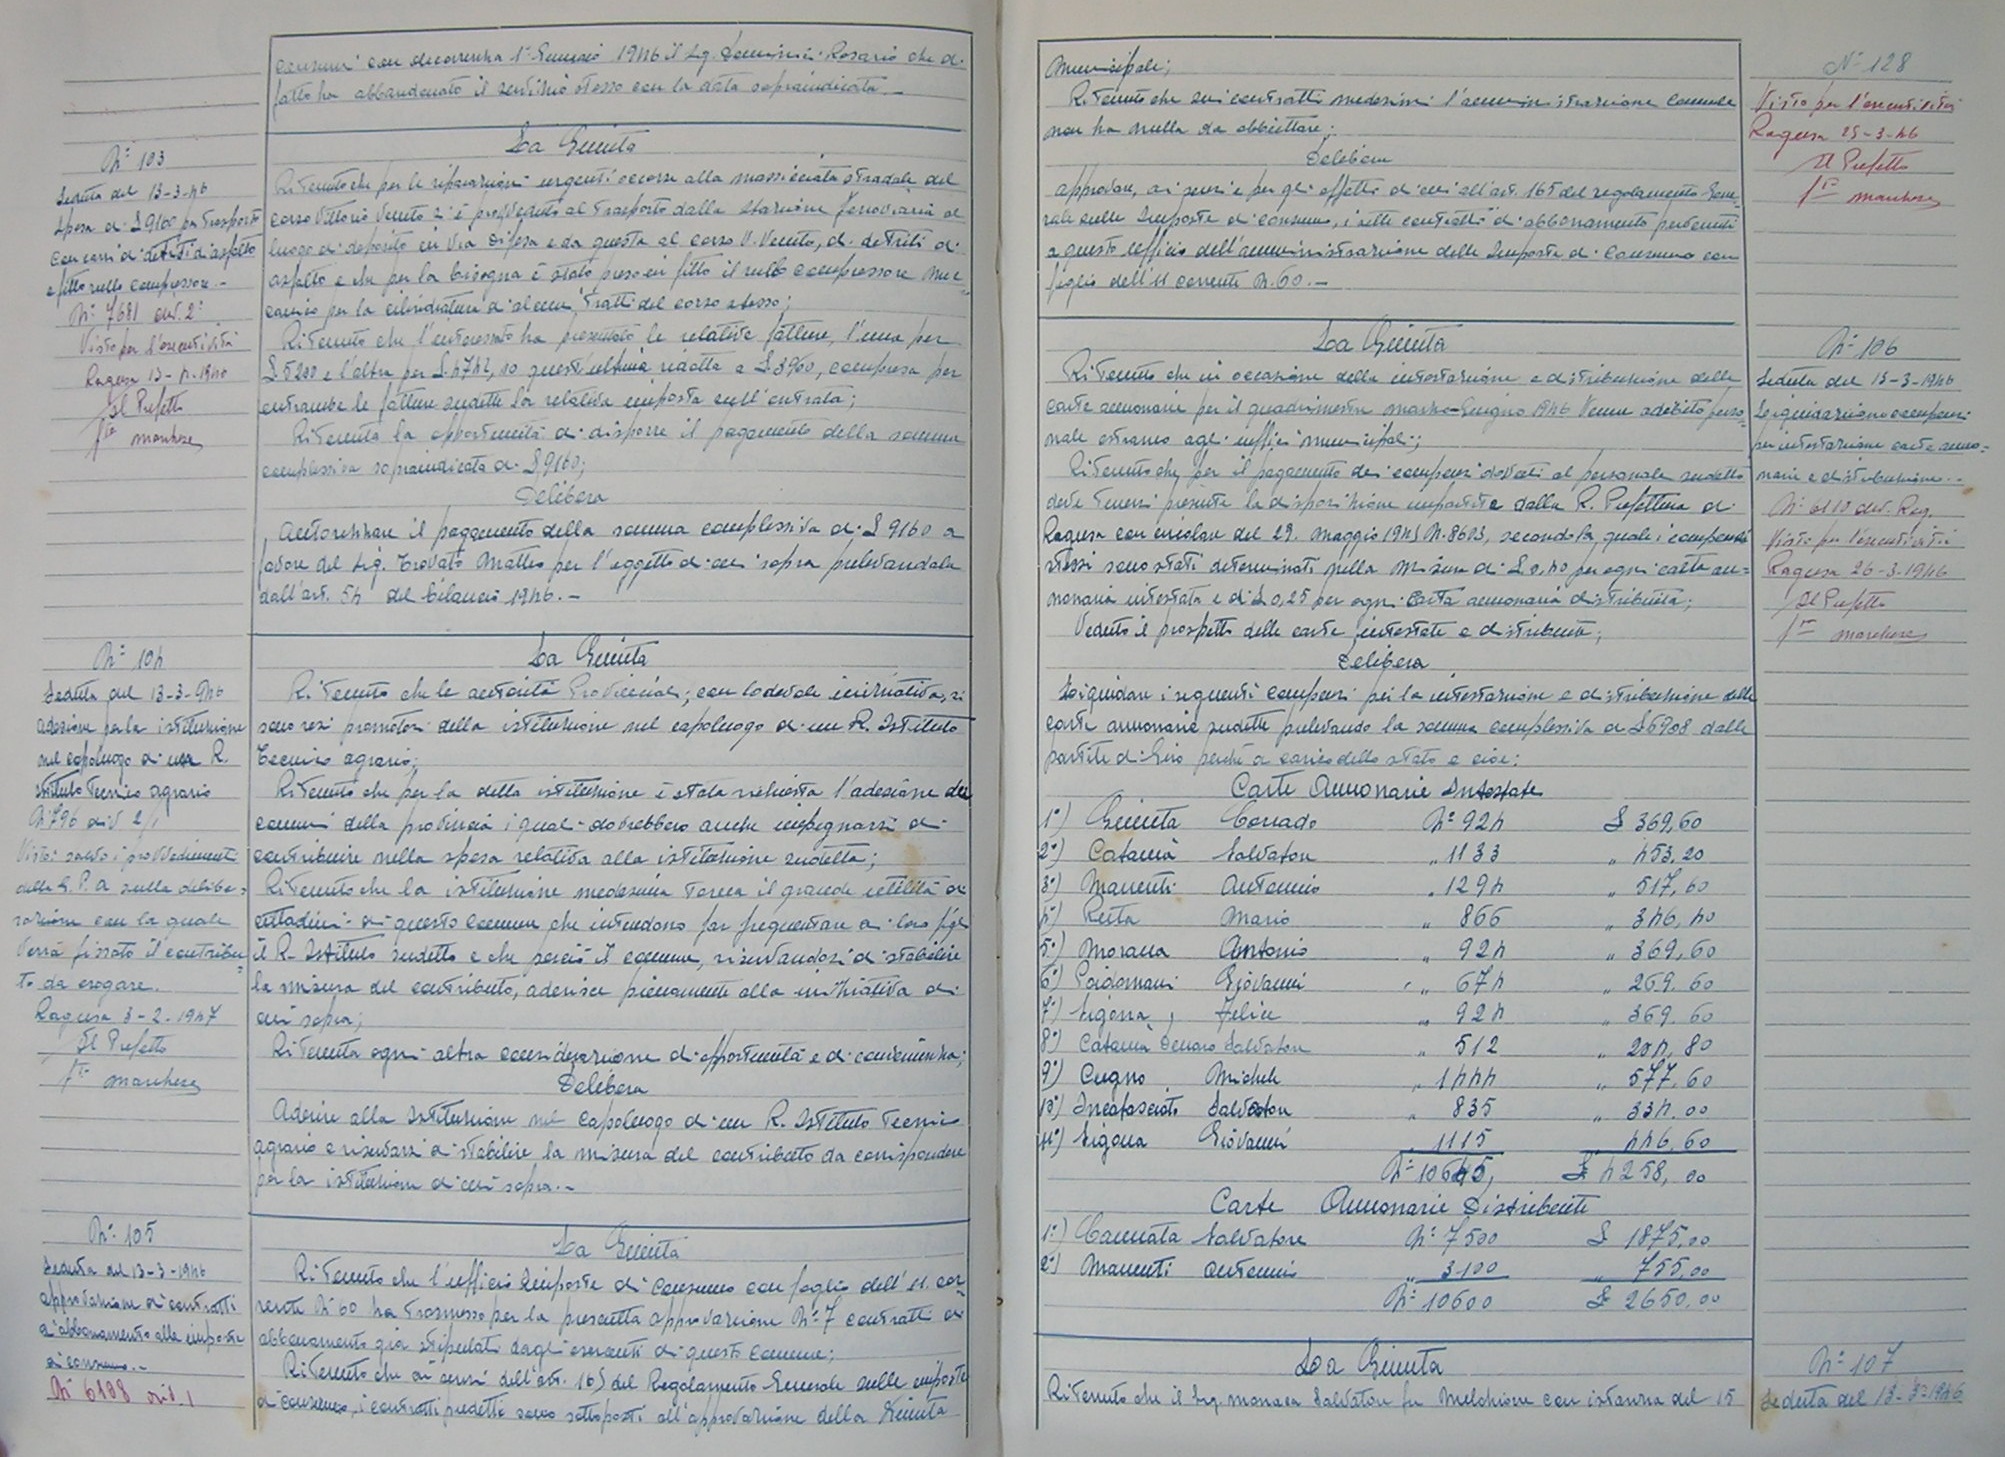 consumi con decorrenza 1° Gennaio 1946 il Sig. Rosario che di
fatto ha abbandonato il servizio stesso con la data sopraindicata.-
N° 103
Seduta del 13-3-46
Spesa di £ 9160 per trasporto
con carri di detriti d'asfalto
e fitto rullo compressore.-
N° 7681 div. 2ª
Visto per l'esecutività
Ragusa 13-4-1946
Il Prefetto
La Giunta
Ritenuto che per le riparazioni urgenti occorse alla massicciata stradale del
corso Vittorio Veneto si è provveduto al trasporto dalla stazione ferroviaria al
luogo di deposito in Via Difesa e da questa al corso V. Veneto, di detriti di
asfalto e che per la bisogna è stato preso in fitto il rullo compressore mec=
canico per la cilindratura di alcuni tratti del corso stesso;
Ritenuto che l'interessato ha presentato le relative fatture, l'una per
£ 5200 e l'altra per £ 4742,10 quest'ultima ridotta a £ 3960, compresa per
entrambe le fatture sudette la relativa imposta sull'entrata;
Ritenuta la opportunità di disporre il pagamento della somma
complessiva sopraindicata di £ 9160;
Delibera
Autorizzare il pagamento della somma complessiva di £ 9160 a
favore del Sig. Trovato Matteo per l'oggetto di cui sopra prelevandola
dall'art. 54 del bilancio 1946.-
N° 104
Seduta del 13-3-946
Adesione per la istituzione
nel capoluogo di un R.
Istituto Tecnico agrario
N° 796 div 2/1
Visto: salvo i provvedimenti
della G.P.A. sulla delibe=
razione con la quale
verrà fissato il contribu=
to da erogare.
Ragusa 3-2-1947
Il Prefetto
La Giunta
Ritenuto che le autorità Provinciali, con lodevole iniziativa, si
sono resi promotori della istituzione nel capoluogo di un R. Istituto
Tecnico agrario;
Ritenuto che per la detta istituzione è stata richiesta l'adesione dei
comuni della provincia i quali dovrebbero anche impegnarsi di
contribuire nella spesa relativa alla istituzione sudetta;
Ritenuto che la istituzione medesima torna di grande utilità ai
cittadini di questo Comune che intendono far frequentare ai loro figli
il R. Istituto sudetto e che perciò il comune, riservandosi di stabilire
la misura del contributo, aderisce pienamente alla iniziativa di
cui sopra;
Ritenuta ogni altra considerazione di opportunità e di convenienza;
Delibera
Aderire alla istituzione nel Capoluogo di un R. Istituto Tecnico
agrario e riservarsi di stabilire la misura del contributo da corrispondere
per la istituzione di cui sopra.-
N° 105
Seduta del 13-3-1946
Approvazione di contratti
d'abbonamento alle imposte
di consumo.-
N° 6188 div. 1
La Giunta
Ritenuto che l'ufficio Imposte di Consumo con foglio dell'11 cor=
rente N° 60 ha trasmesso per la prescritta approvazione N° 7 contratti di
abbonamento già stipulati dagli esercenti di questo Comune;
Ritenuto che ai sensi dell'art. 165 del Regolamento Generale sulle imposte
di consumo, i contratti predetti sono sottoposti all'approvazione della Giunta
Municipale;
Ritenuto che sui contratti medesimi l'amministrazione Comunale
non ha nulla da obbiettare;
Delibera
approvare, ai sensi e per gli effetti di cui all'art. 165 del regolamento Gene=
rale sulle Imposte di consumo, i sette contratti di abbonamento pervenuti
a questo ufficio dell'amministrazione delle Imposte di Consumo con
foglio dell'11 corrente N. 60.-
N° 128
Visto per l'esecutività
Ragusa 25-3-46
Il Prefetto
La Giunta
Ritenuto che in occasione della intestazione e distribuzione delle
carte annonarie per il quadrimestre marzo-Giugno 1946 venne adibito perso=
nale estraneo agli uffici municipali;
Ritenuto che per il pagamento dei compensi dovuti al personale sudetto
deve tenersi presente la disposizione impartita dalla R. Prefettura di
Ragusa con circolare del 29 maggio 1945 N. 8603, secondo la quale i compensi
stessi sono stati determinati nella misura di £ 0,40 per ogni carta an=
nonaria intestata e di £ 0,25 per ogni carta annonaria distribuita;
Veduto il prospetto delle carte intestate e distribuite;
Delibera
Liquidare i seguenti compensi per la intestazione e distribuzione delle
carte annonarie sudette prelevando la somma complessiva di £ 6908 dalle
partite di Giro perchè a carico dello stato e cioè:
N° 106
Seduta del 13-3-1946
Liquidazione compensi
per intestazione carte anno=
narie e distribuzione.-
N° 6180 div. Rag.
Visto per l'esecutività
Ragusa 26-3-1946
Il Prefetto
Carte Annonarie Intestate
1°) Giunta Corrado N° 924 £ 369,60
2°) Catania Salvatore " 1133 " 453,20
3°) Mannenti Antonio " 1294 " 517,60
4°) Reita Mario " 866 " 346,40
5°) Morana Antonio " 924 " 369,60
6°) Poidomani Giovanni " 674 " 269,60
7°) Sigona Felice " 924 " 369,60
8°) Catania Denaro Salvatore " 512 " 204,80
9°) Cugno Michele " 1444 " 577,60
10°) Incatasciato Salvatore " 835 " 334,00
11°) Sigona Giovanni " 1115 " 446,60
N° 10645, £ 4258,00
Carte Annonarie Distribuite
1°) Cannata Salvatore N° 7500 £ 1875,00
2°) Mannenti Antonio " 3100 " 755,00
N° 10600 £ 2650,00
La Giunta
Ritenuto che il Sig. Monaca Salvatore fu Melchiorre con istanza del 15
N° 107
Seduta del 13-3-1946